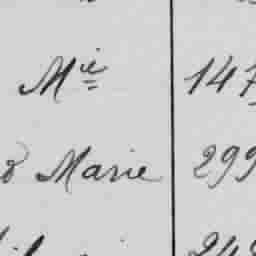 Mie 147
d Marie 299